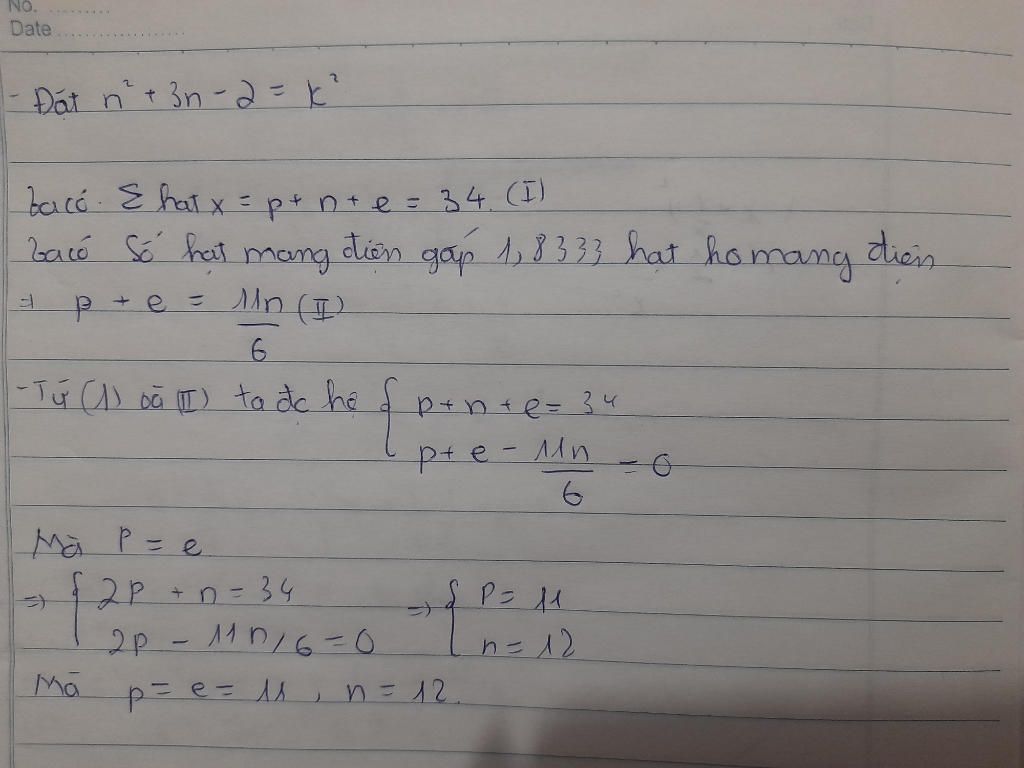 No. ..........
Date ....................
- Đặt n² + 3n - 2 = k²
Ta có. Σ hạt x = p + n + e = 34. (I)
Ta có Số hạt mang điện gấp 1,8333 hạt ko mang điện
⇒ p + e = 11n/6 (II)
- Từ (1) và (II) ta đc hệ { p + n + e = 34
p + e - 11n/6 = 0
Mà P = e
⇒ { 2P + n = 34 ⇒ { P = 11
2p - 11n/6 = 0 n = 12
Mà p = e = 11, n = 12.